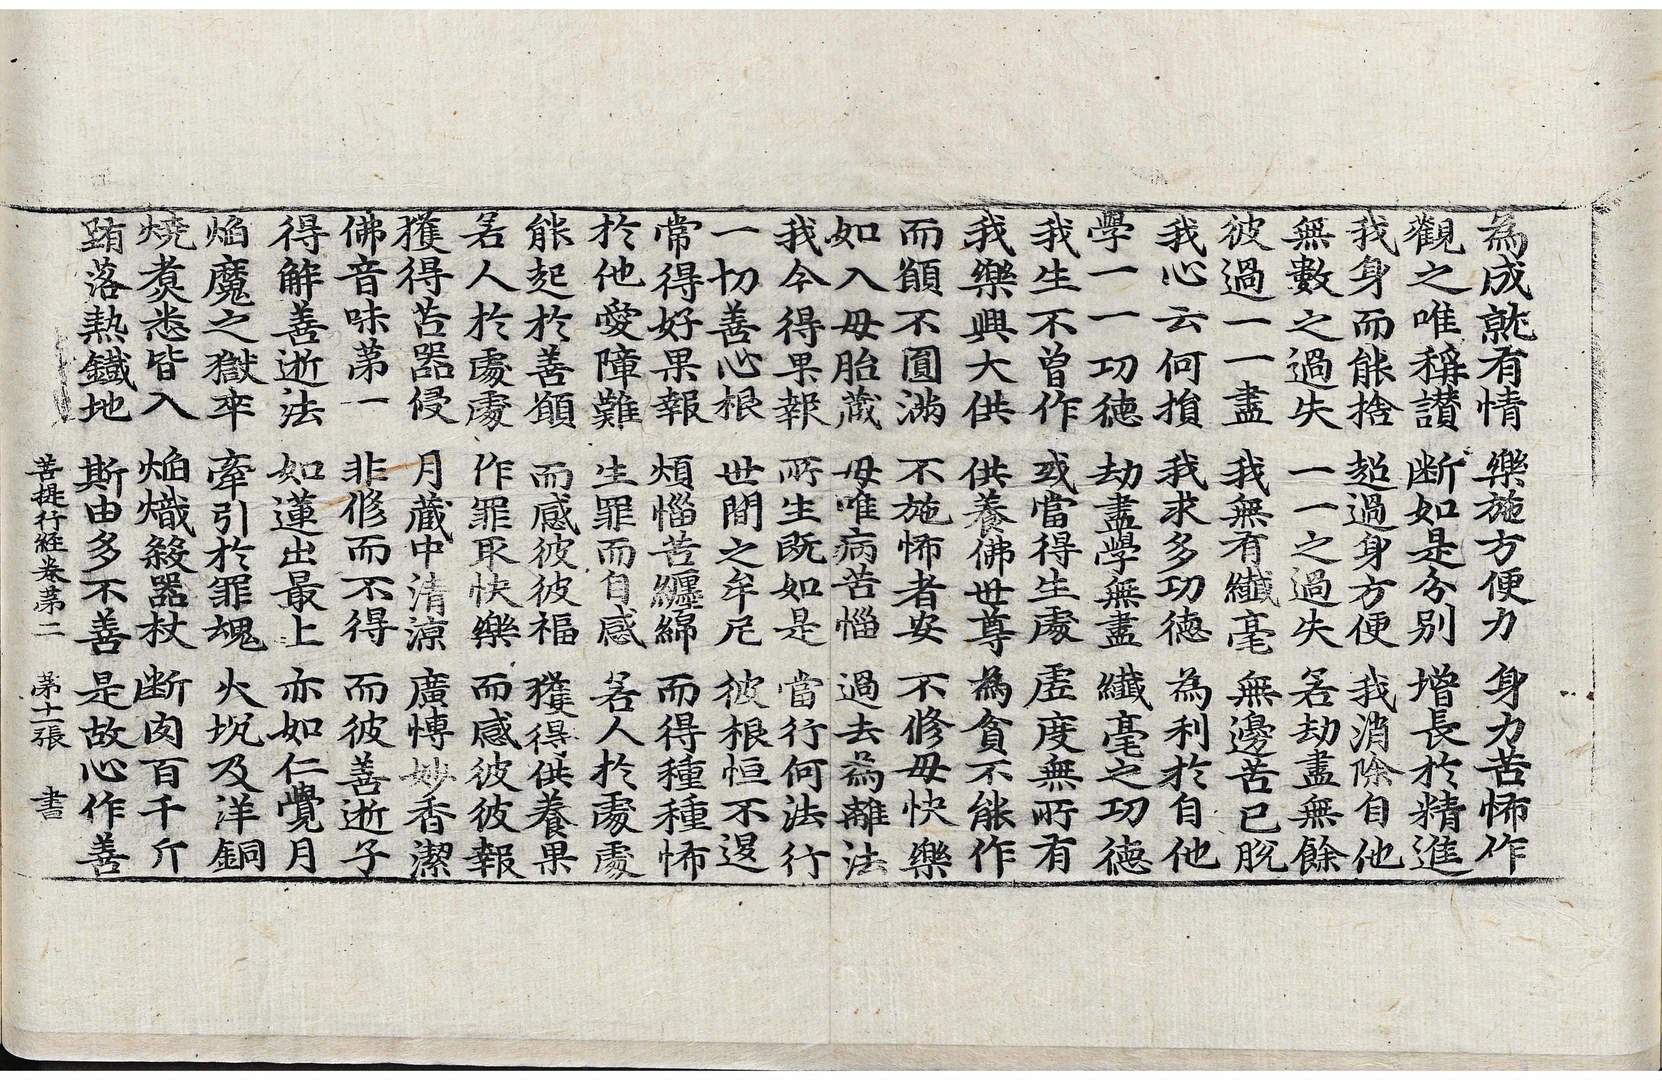 為成就有情 樂施方便力 身力苦怖作
觀之唯稱讃 断如是分别 增長於精進
我身而能捨 超過身方便 我消除自他
無數之過失 一一之過失 若劫盡無餘
彼過一一盡 我無有纖毫 無邊苦已脫
我心云何損 我求多功德 為利於自他
學一一功德 劫盡學無盡 纖毫之功德
我生不曾作 或當得生處 虛度無所有
我樂興大供 供養佛世尊 為貧不能作
而願不圓滿 不施怖者安 不修母快樂
如入母胎藏 母唯病苦惱 過去為離法
我今得果報 所生既如是 當行何法行
一切善心根 世間之牟尼 彼根恒不退
常得好果報 煩惱苦纏綿 而得種種怖
於他愛障難 生罪而自感 若人於處處
能起於善願 而感彼彼福 獲得供養果
若人於處處 作罪取快樂 而感彼彼報
獲得苦器侵 月藏中清涼 廣博妙香潔
佛音味第一 非修而不得 而彼善逝子
得解善逝法 如蓮出最上 亦如仁覺月
焰魔之獄卒 牽引於罪魂 火坑及洋銅
燒煑悉皆入 焰熾殺器杖 断肉百千斤
䧟落熱鐵地 斯由多不善 是故心作善
菩提行經卷第二 第十一張 書